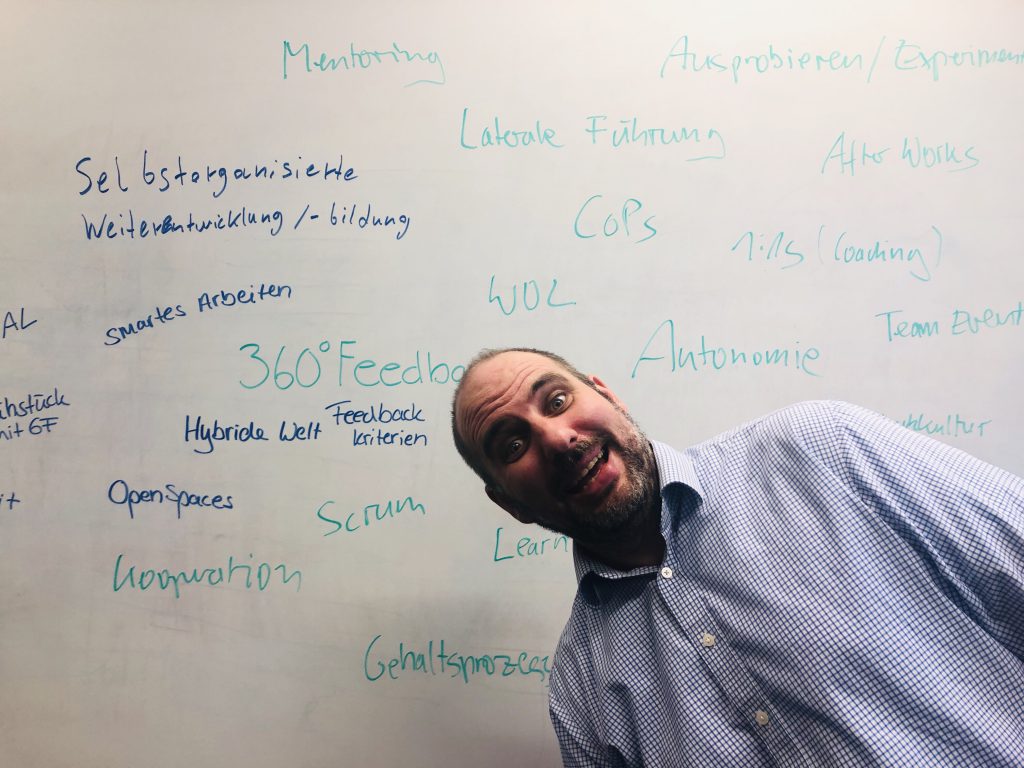 Mentoring
Ausprobieren / Experimen
Laterale Führung
After Works
Selbstorganisierte
Weiterentwicklung /- bildung
CoPs
1:1s (Coaching)
WOL
smartes Arbeiten
AL
Team Event
360° Feedba
Autonomie
ühstück
mit GF
Hybride Welt
Feedback
kriterien
kultur
OpenSpaces
Scrum
Learn
Kooperation
Gehaltsprozess